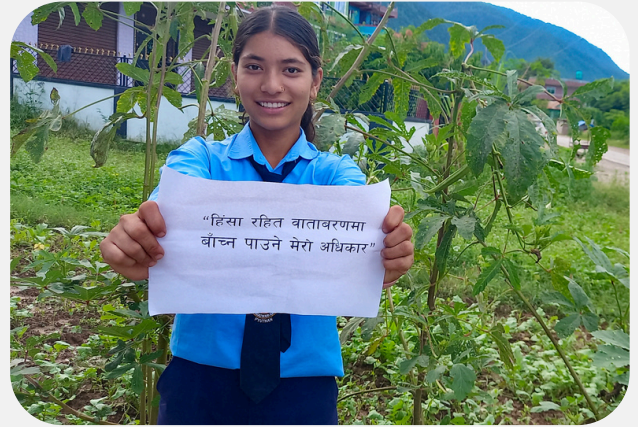 “हिंसा रहित वाताबरणमा
बाँच्न पाउने मेरो अधिकार”